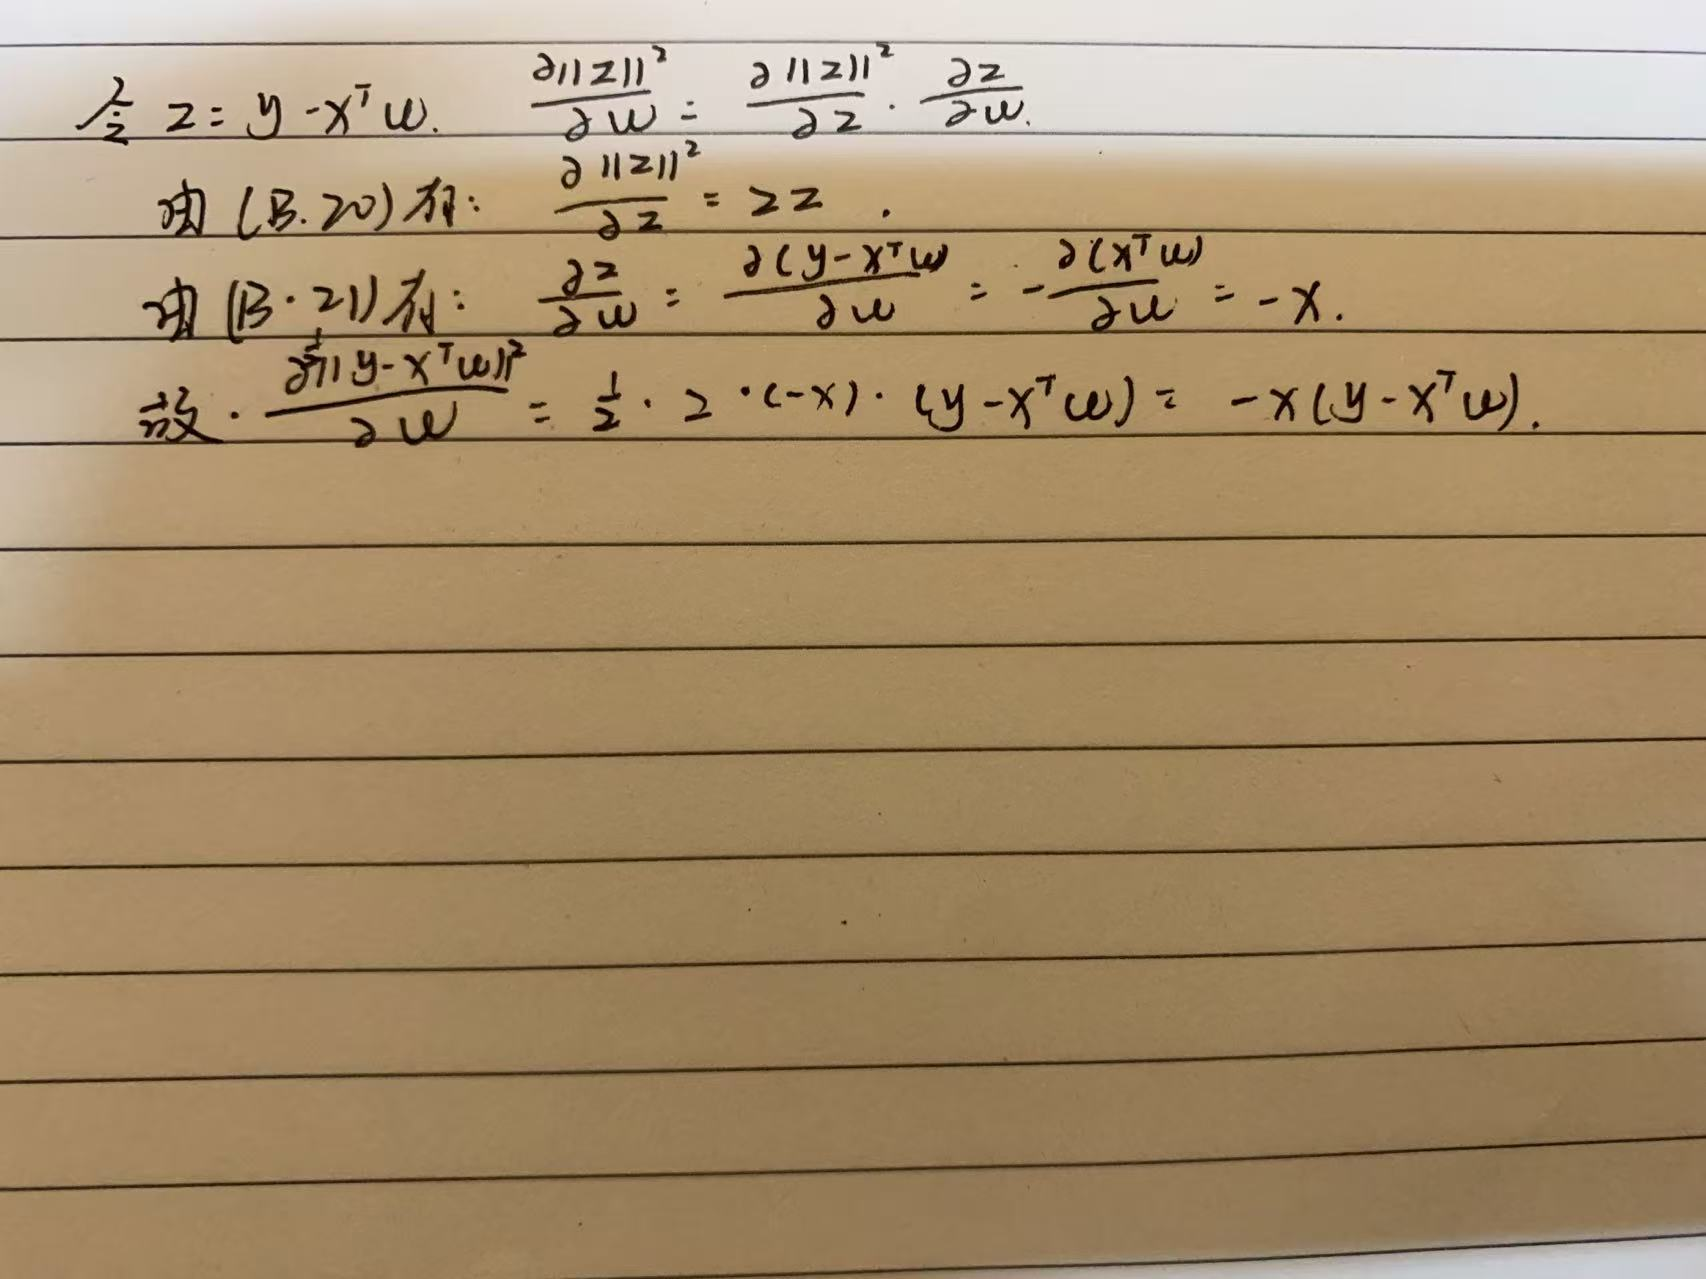 令 z = y - X^T w. ∂||z||²/∂w = ∂||z||²/∂z · ∂z/∂w.
由 (B.20) 有: ∂||z||²/∂z = 2z.
由 (B.21) 有: ∂z/∂w = ∂(y - X^T w)/∂w = - ∂(X^T w)/∂w = -X.
故. ∂½||y - X^T w||²/∂w = ½ · 2 · (-X) · (y - X^T w) = -X(y - X^T w).